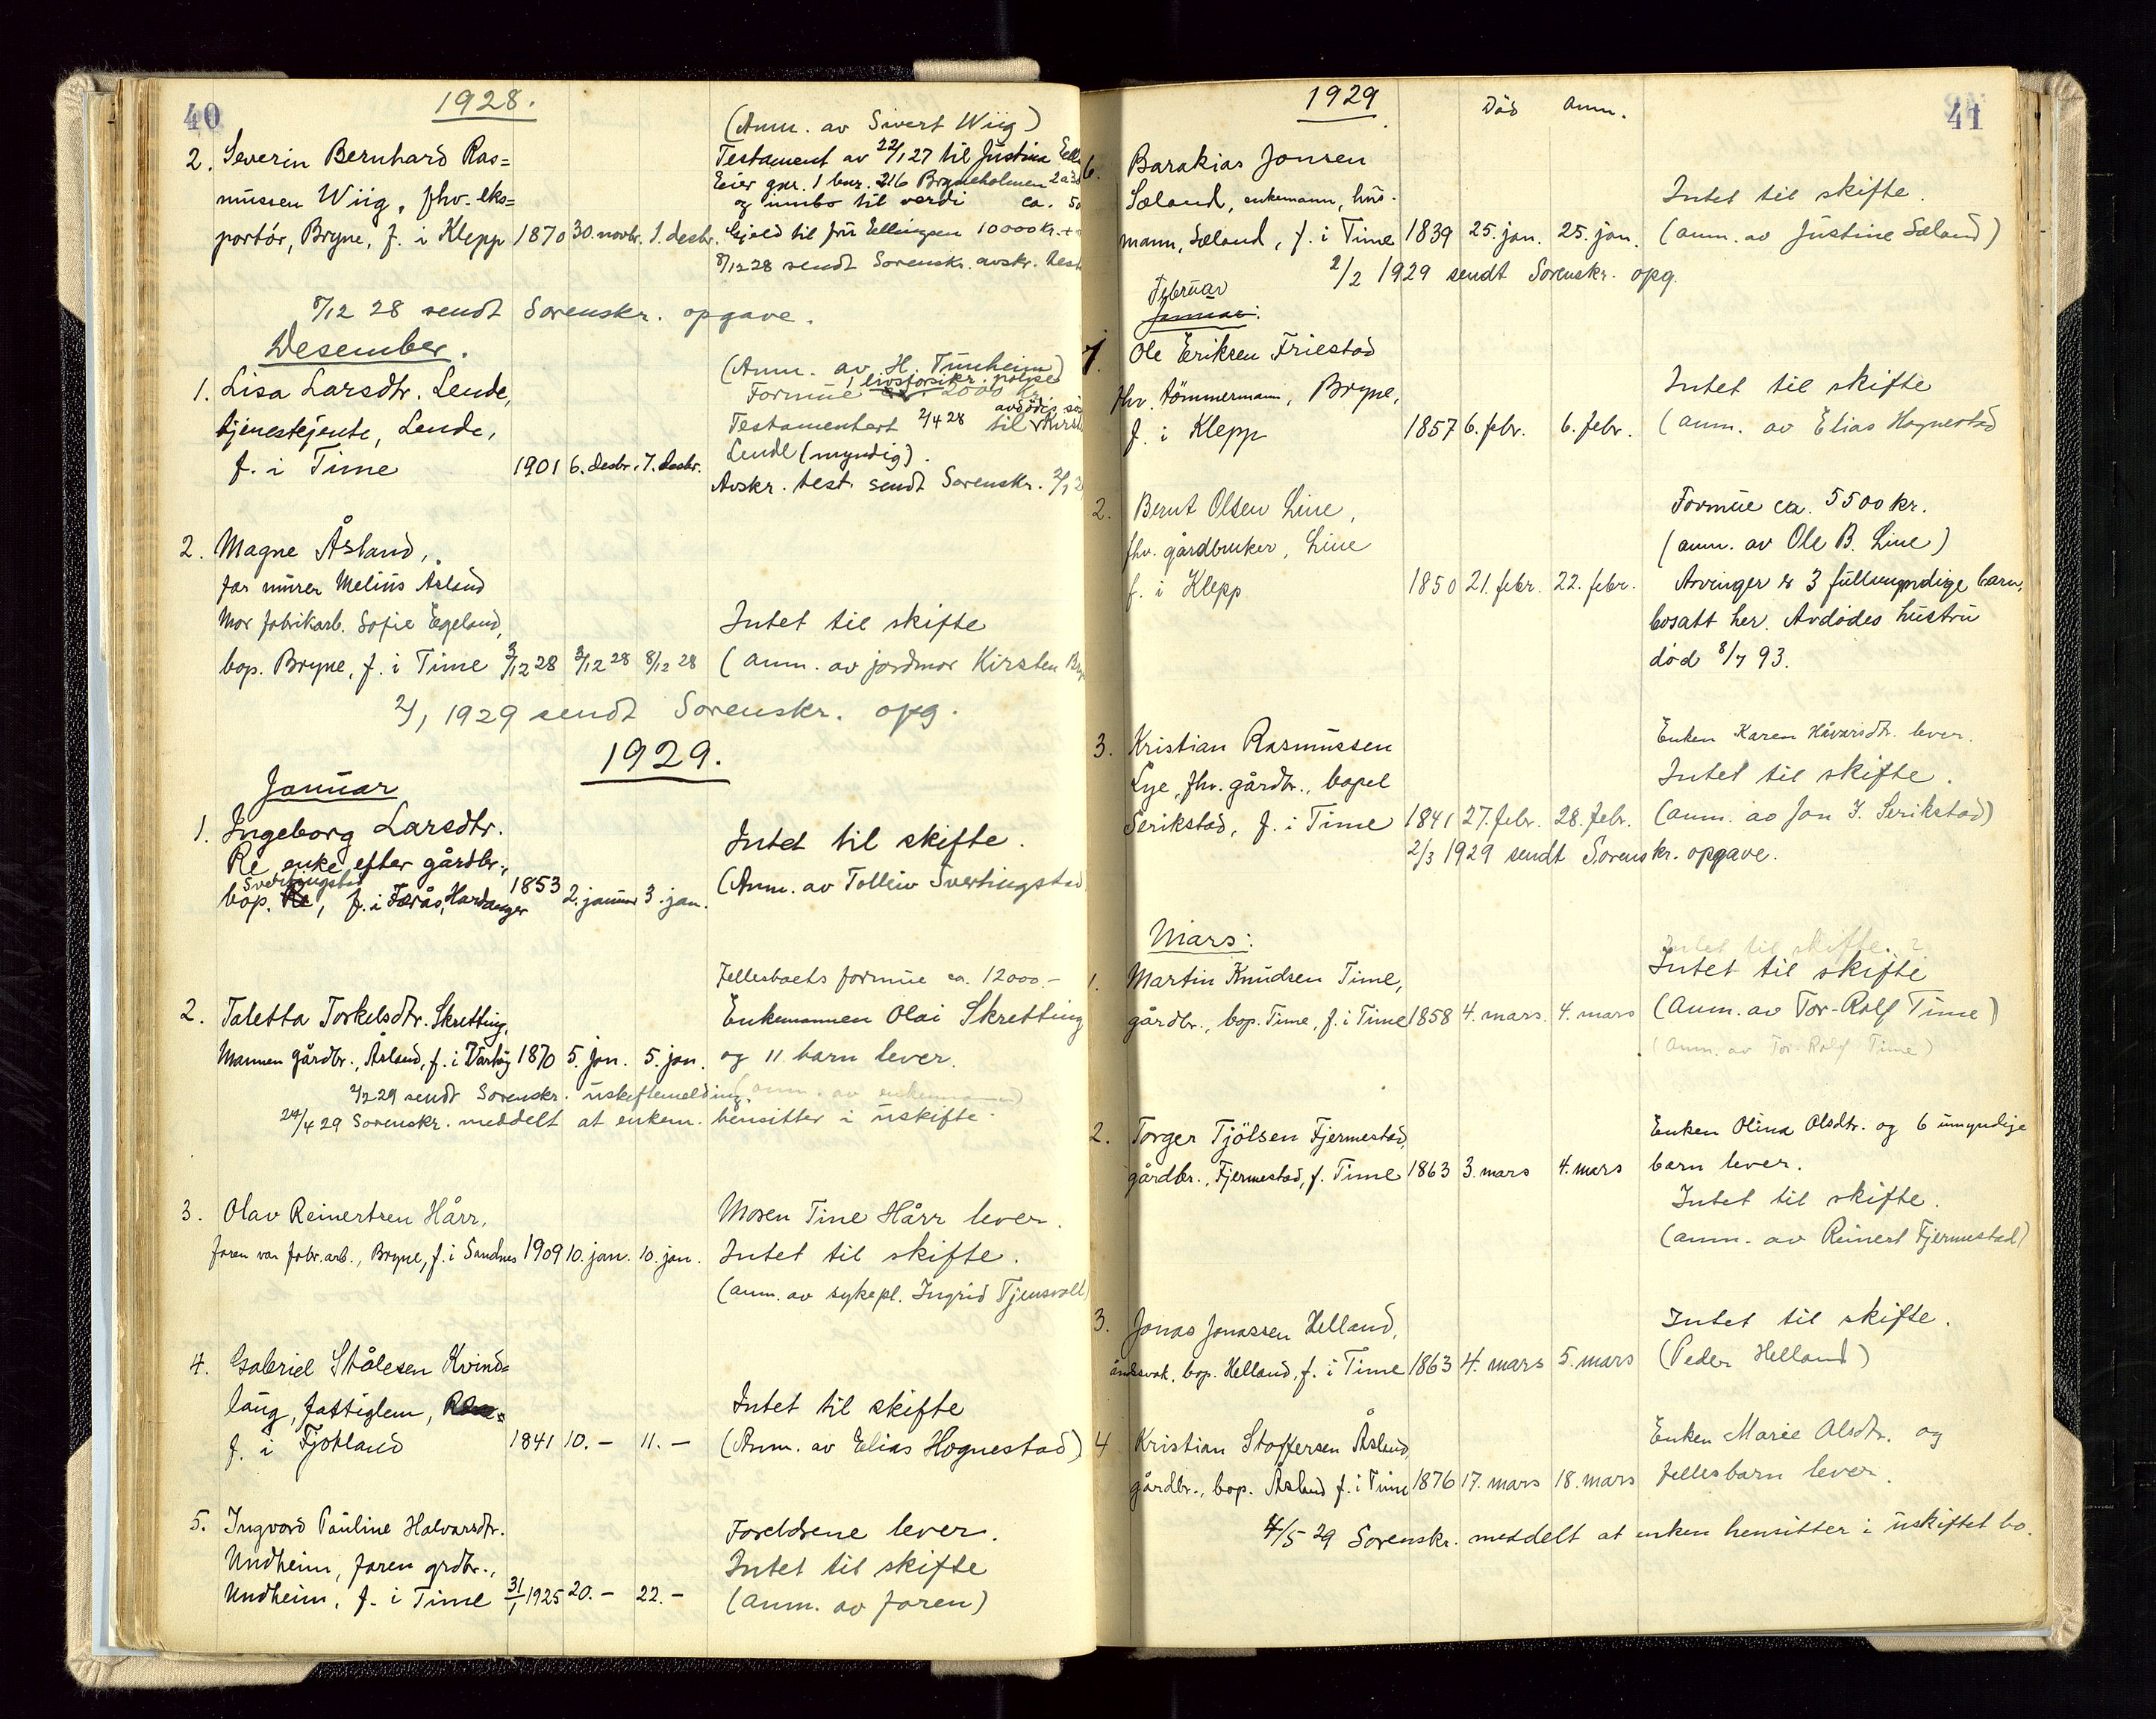 40
1928.
2. Severin Bernhard Ras=
mussen Wiig, fhv. eks=
portör, Bryne, f. i Klepp 1870 30. novbr. 1. desbr.
(Anm. av Sivert Wiig)
Testament av 22/1 27 til Justina
Eier gnr. 1 bnr. 216 Bryneholmen
og innbo til verdi ca.
Gjeld til fru Ellingsen 10000 kr.
8/12 28 sendt Sorenskr. avskr.
8/12 28 sendt Sorenskr. opgave.
Desember.
1. Lisa Larsdtr. Lende,
tjenestejente, Lende,
f. i Time 1901 6. desbr. 7. desbr.
(Anm. av H. Tunheim)
1 livsforsikr. polise
Formue 2000 Kr.
avdödes
Testamentert 2/4 28 til
Lende (myndig).
Avskr. test. sendt Sorenskr.
2. Magne Åsland,
far murer Melius Åsland
Mor fabrikarb. Sofie Egeland,
bop. Bryne, f. i Time 3/12 28 3/12 28 8/12 28
Intet til skifte
(anm. av jordmor Kirsten
2/1 1929 sendt Sorenskr. opg.
1929.
Januar
1. Ingeborg Larsdtr.
Re enke efter gårdbr.,
Svertingstad
bop. Re, f. i Hardanger 1853 2. januar 3. jan.
Intet til skifte.
(Anm. av Tolleiv Svertingstad
2. Taletta Torkelsdtr. Skretting,
Mannen gårdbr., Åsland, f. i Varhaug 1870 5. jan. 5. jan.
Fellesboets formue ca. 12000.-
Enkemannen Olai Skretting
og 11 barn lever.
(anm. av enkemannen)
2/2 29 sendt Sorenskr. uskiftemelding.
24/4 29 Sorenskr. meddelt at enkem. hensitter i uskifte.
3. Olav Reinertsen Hårr,
faren var fabr. arb., Bryne, f. i Sandnes 1909 10. jan. 10. jan.
Moren Tine Hårr lever.
Intet til skifte.
(anm. av sykepl. Ingrid Tjensvoll)
4. Gabriel Ståleson Kvind=
laug, fattiglem,
f. i Fjotland 1841 10. - 11. -
Intet til skifte
(Anm. av Elias Hognestad)
5. Ingvard Pauline Halvarsdtr.
Undheim, faren grdbr.,
Undheim, f. i Time 31/1 1925 20. - 22. -
Foreldrene lever.
Intet til skifte
(anm. av faren)
41
1929 Död Anm.
6. Barakias Jonsen
Sæland, enkemann, hus-
mann, Sæland, f. i Time 1839 25. jan. 25. jan.
Intet til skifte.
(anm. av Justine Sæland)
2/2 1929 sendt Sorenskr. opg.
Februar
Januar:
1. Ole Eriksen Friestad
fhv. tömmermann, Bryne,
f. i Klepp 1857 6. febr. 6. febr.
Intet til skifte
(anm. av Elias Hognestad
2. Bernt Olsen Line,
fhv. gårdbruker, Line
f. i Klepp 1850 21. febr. 22. febr.
Formue ca. 5500 kr.
(anm. av Ole B. Line)
Arvinger er 3 fullmyndige barn,
bosatt her. Avdödes hustru
död 8/7 93.
3. Kristian Rasmussen
Lye, fhv. gårdbr., bopel
Serikstad, f. i Time 1841 27. febr. 28. febr.
Enken Karen Håvarsdtr. lever.
Intet til skifte.
(anm. av Jon J. Serikstad)
2/3 1929 sendt Sorenskr. opgave.
Mars:
1. Martin Knudsen Time,
gårdbr., bop. Time, f. i Time 1858 4. mars. 4. mars
Intet til skifte. ?
Intet til skifte
(Anm. av Tor-Rolf Time)
(anm. av Tor-Rolf Time)
2. Torger Tjölsen Fjermestad,
gårdbr., Fjermestad, f. Time 1863 3. mars 4. mars
Enken Olina Olsdtr. og 6 umyndige
barn lever.
Intet til skifte.
(anm. av Reinert Fjermestad)
3. Jonas Jonassen Helland,
åndssvak, bop. Helland, f. i Time 1863 4. mars 5. mars
Intet til skifte.
(Peder Helland)
4 Kristian Stoffersen Åsland,
gårdbr., bop. Åsland f. i Time 1876 17. mars 18. mars
Enken Marie Olsdtr. og
fellesbarn lever.
4/5 29 Sorenskr. meddelt at enken hensitter i uskiftet bo.